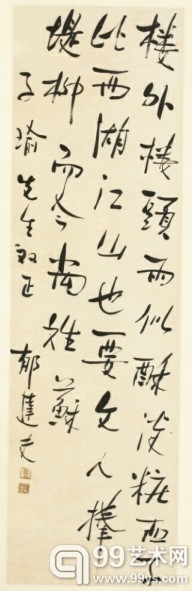 樓外樓頭雨似酥淡粧西子
比西湖江山也要文人捧
堤柳而今尚姓蘇
子瑜先生教正
郁達夫
99艺术网
www.99ys.com